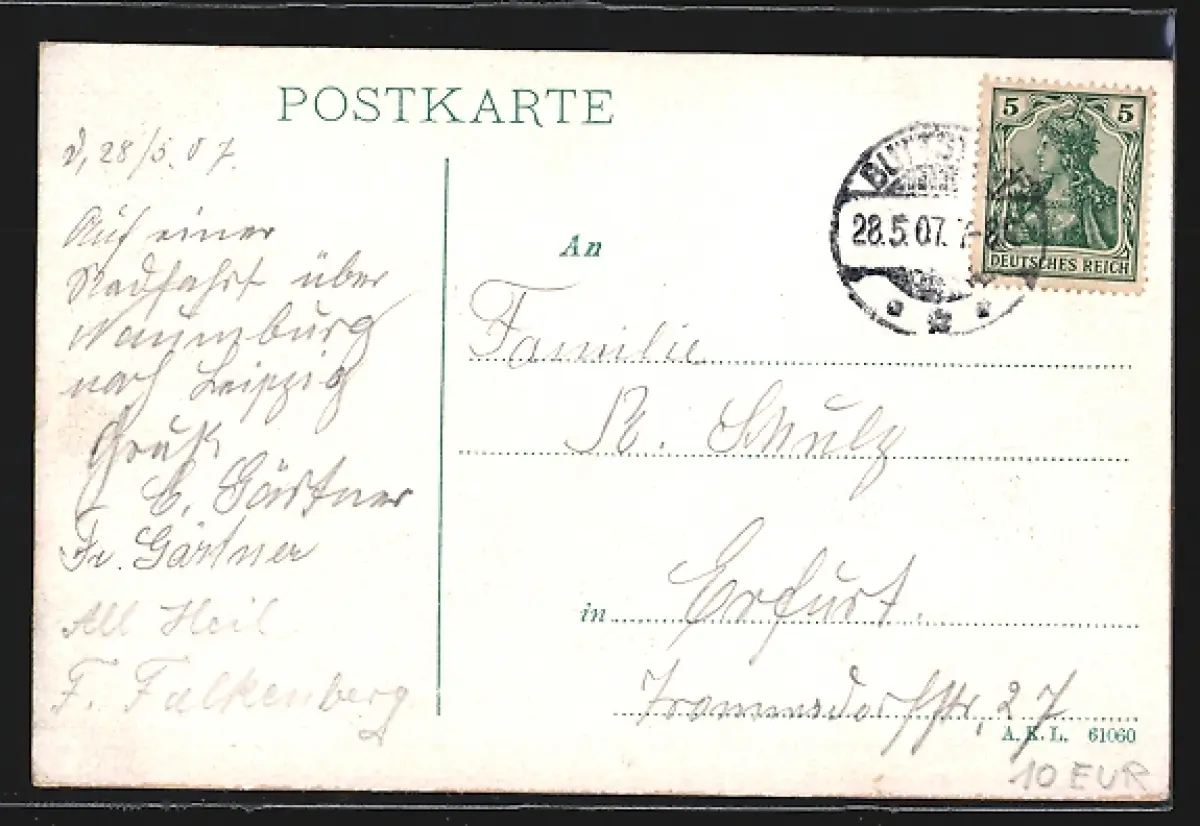 POSTKARTE
d, 28/5. 07.
Auf einer
Radfahrt über
Naumburg
nach Leipzig
Gruß
E. Gärtner
Fr. Gärtner
All Heil
F. Falkenberg
5 5
DEUTSCHES REICH
28.5.07. 7-8
An
Familie
R. Schulz
in Erfurt.
Trommsdorffstr, 27
A.K.L. 61060
10 EUR